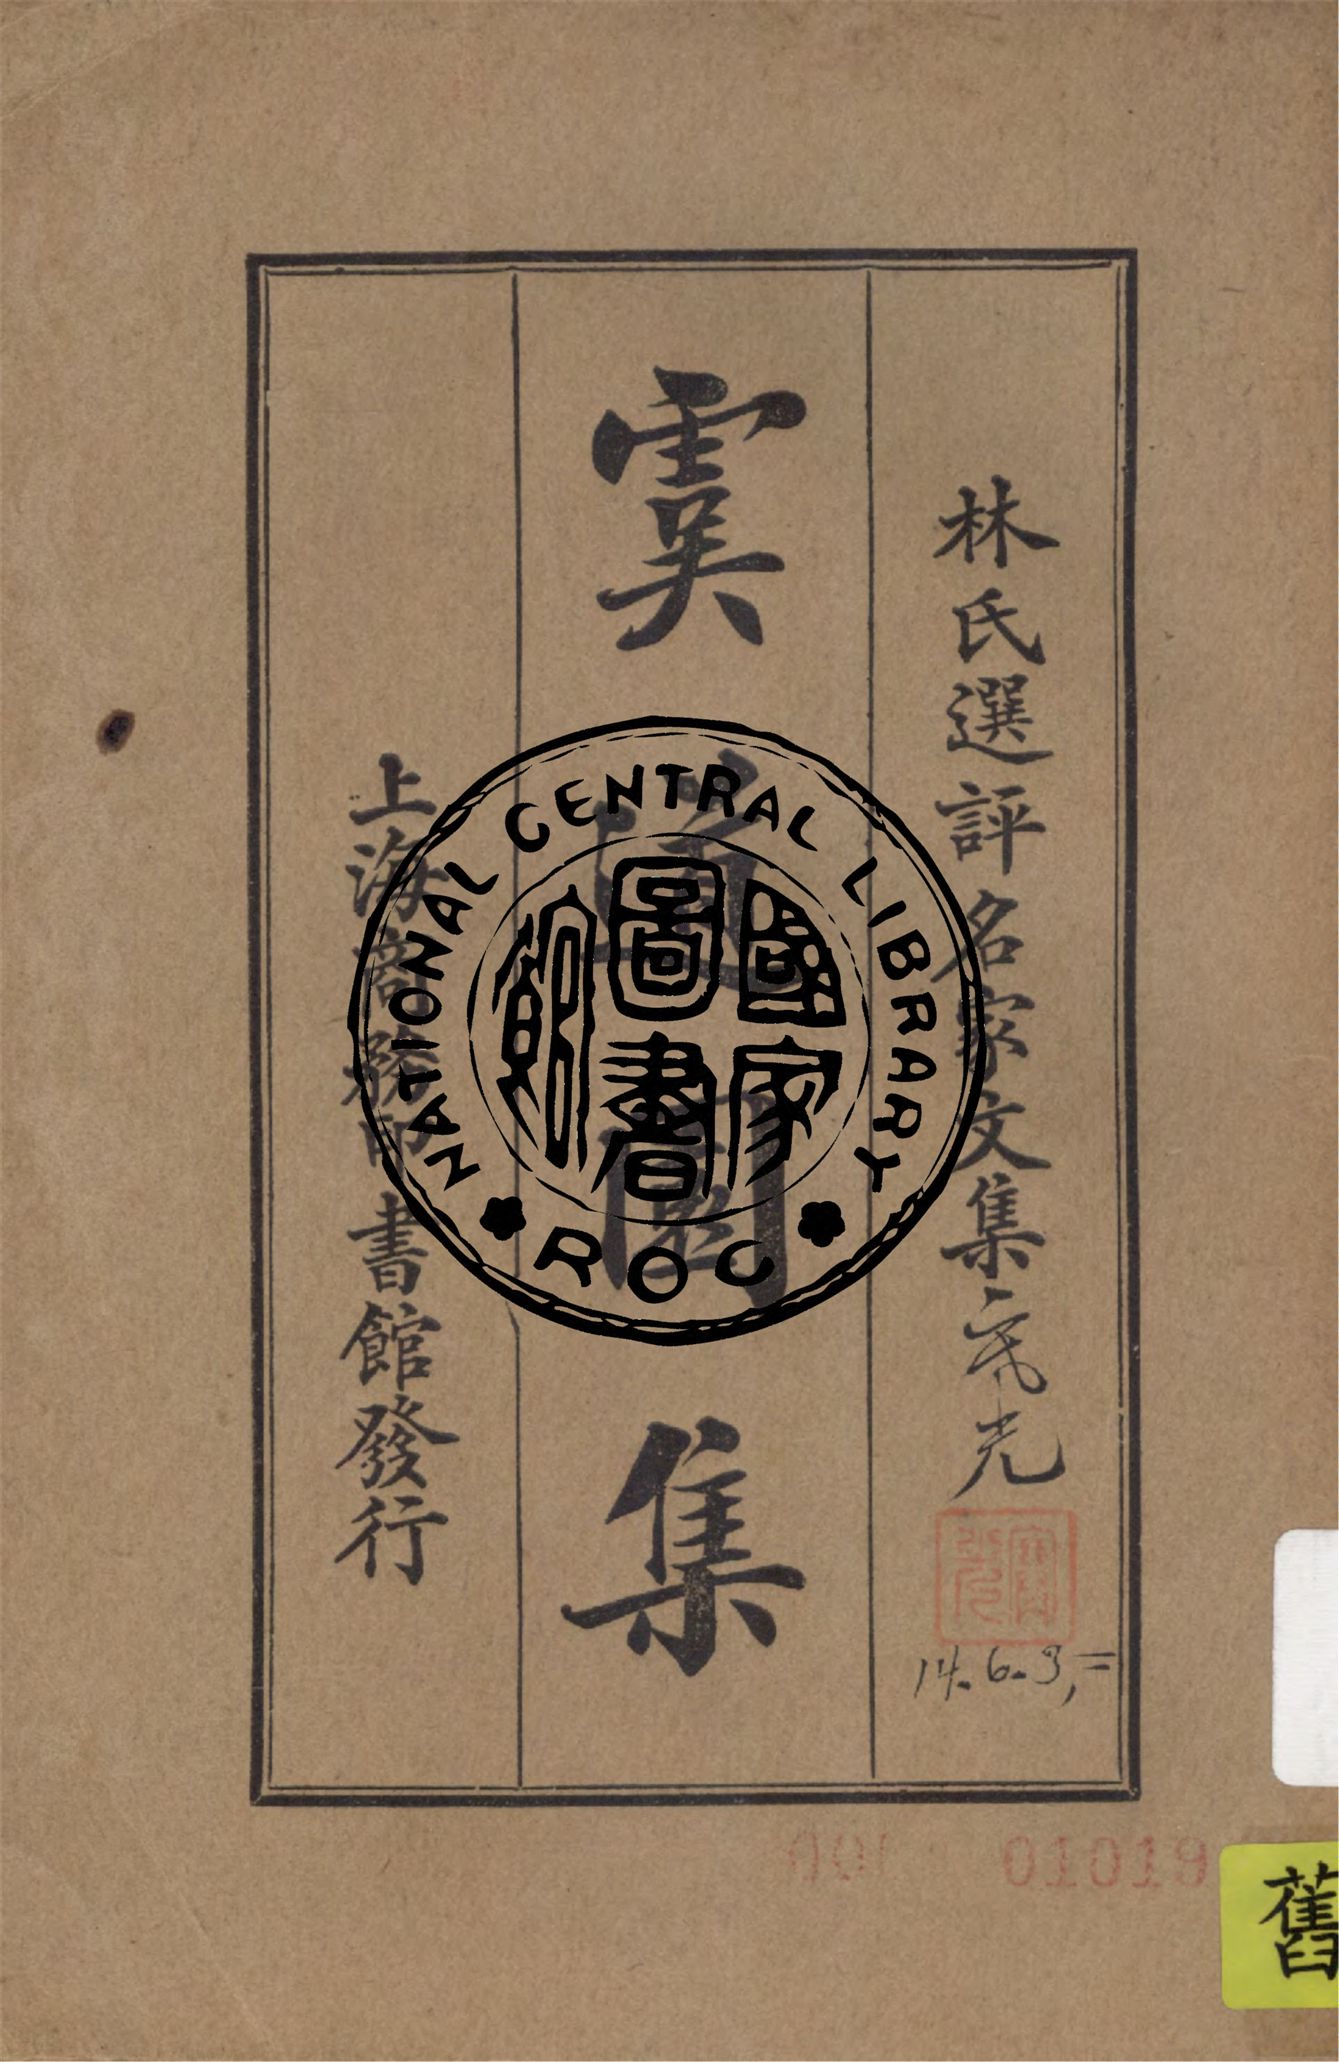 林氏選評名家文集
虞道園集
上海商務印書館發行
NATIONAL CENTRAL LIBRARY
國家圖書館
ROC
14.6.3,=
001 01019
舊